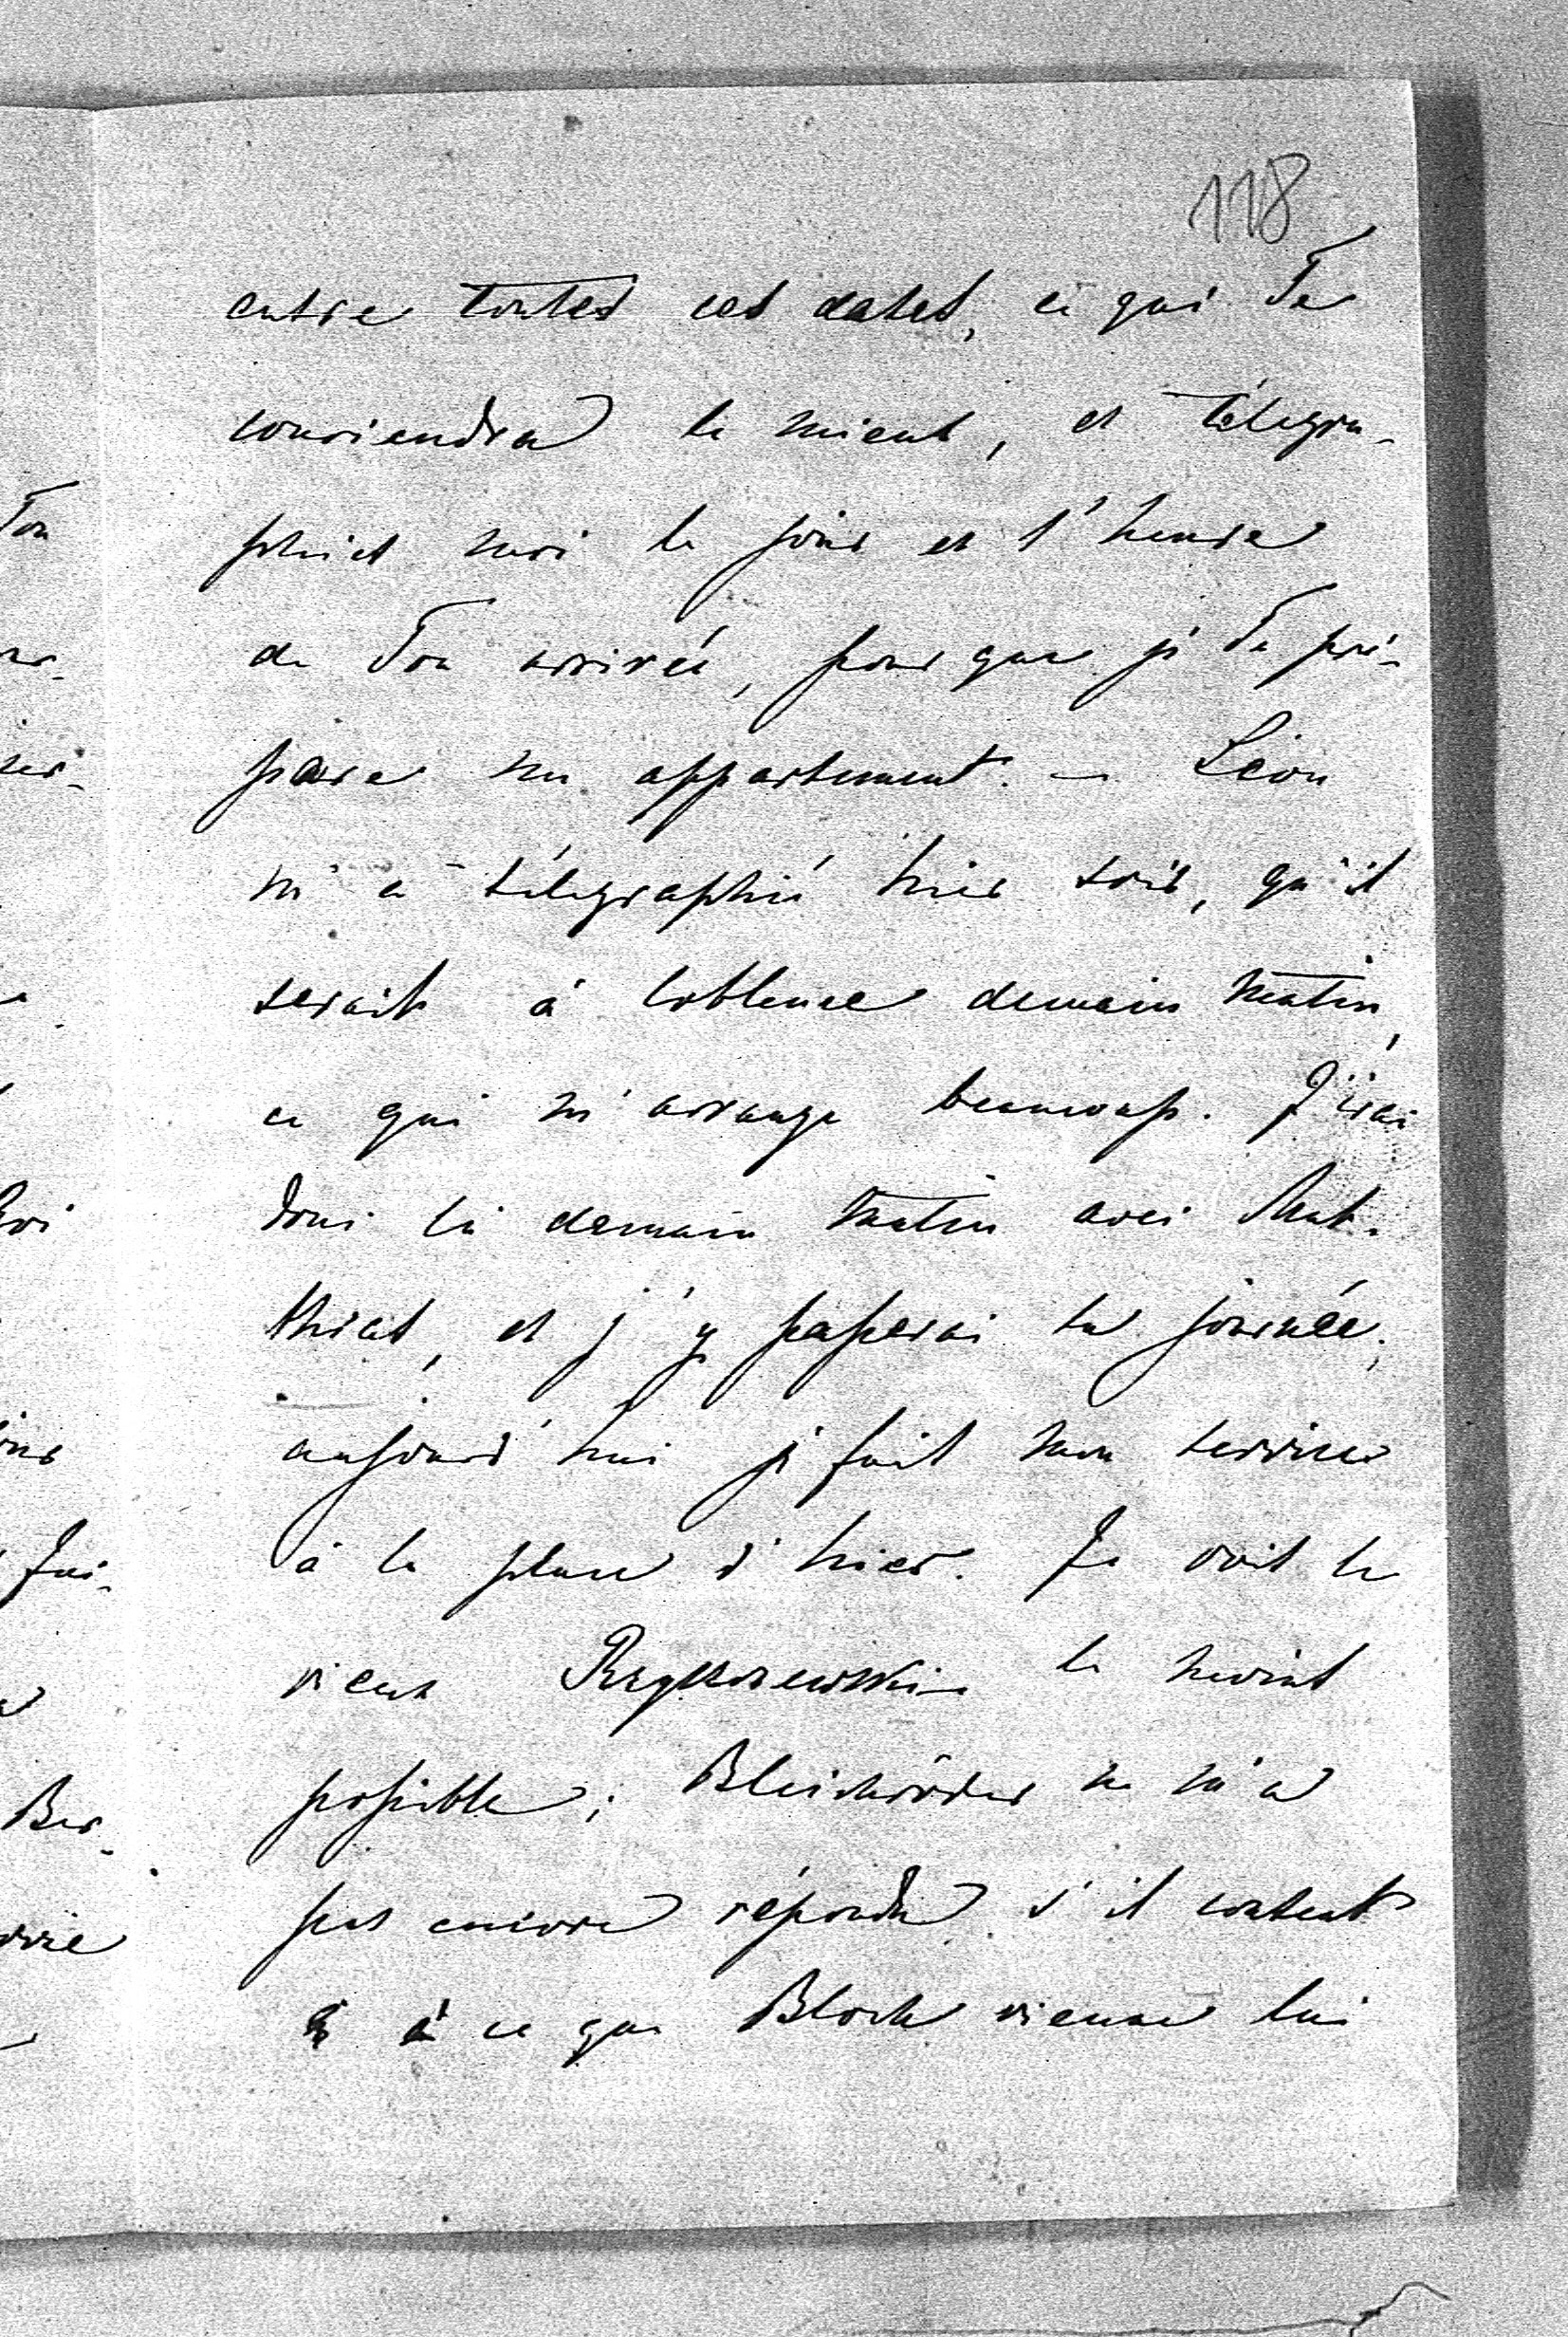 118
entre toutes ces dates, ce qui Te
conviendra le mieux, et télégra-
phies moi le jour et l'heure
de Ton arrivée, pour que je Te pré-
pare un appartement. — Léon
m'a télégraphié hier soir, qu'il
serait à Coblence demain matin,
ce qui m'arrange beaucoup. J'irai
donc là demain matin avec Mat-
thias, et j'y passerai la journée;
aujourd'hui je fais mon service
à la place d'hier. Je vois le
vieux le moins
possible; Bleichröder ne m'a
pas encore répondu s'il consent
à ce que Bloch vienne lui
Ton
Ber-